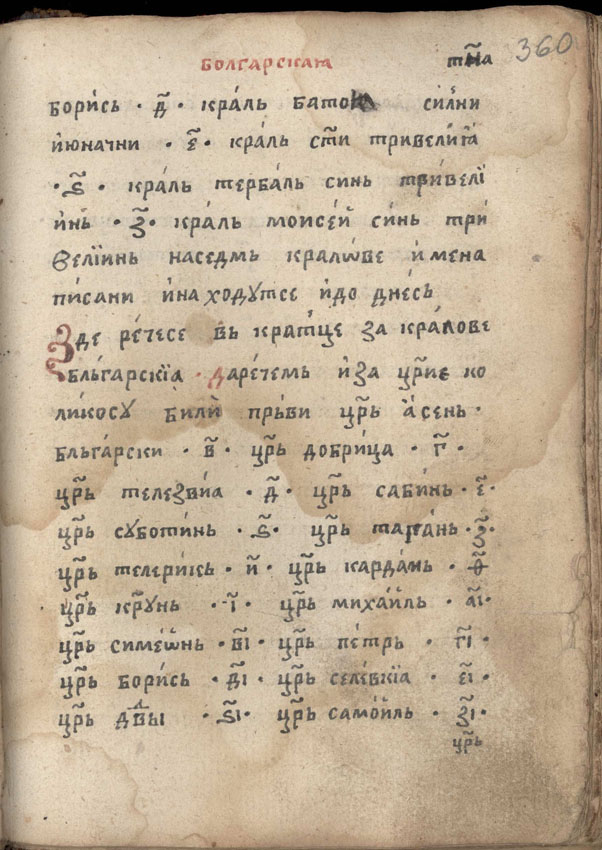 болгарскаꙗ тн҃а 360
борись · д҃ · кра́ль батоя силни
и҆юначни · е҃ · кра́ль ст҃и тривели́ꙗ
· ѕ҃ · кра́ль терба́ль синь три́велї
и҆нь · з҃ · кра́ль моисе́й си́нь три
велїинь наседмь кралѡ́ве и҆мена
пи́сани и҆находꙋтсе и҆до дне́сь
Зде ре́чесе вь кратце за кра́лове
бльга́рскїа · даречемь и҆за цр҃ие ко
ликосꙋ били прьви цр҃ь а҆сень ·
бльга́рски · в҃ · цр҃ь добри́ца · г҃ ·
цр҃ь телезви́а · д҃ · цр҃ь саби́нь · е҃ ·
цр҃ь сꙋботи́нь · ѕ҃ · цр҃ь тага́нь · з҃ ·
цр҃ь телери́кь · и҃ · цр҃ь карда́мь · ѳ҃
цр҃ь крꙋнь · і҃ · цр҃ь михаи́ль · аі҃ ·
цр҃ь симеѡ́нь · ві҃ · цр҃ь пе́трь · гі҃ ·
цр҃ь бори́сь · ді҃ · цр҃ь селе́вкїа · еі҃ ·
цр҃ь двды · ѕі҃ · цр҃ь само́иль · зі҃ ·
цр҃ь